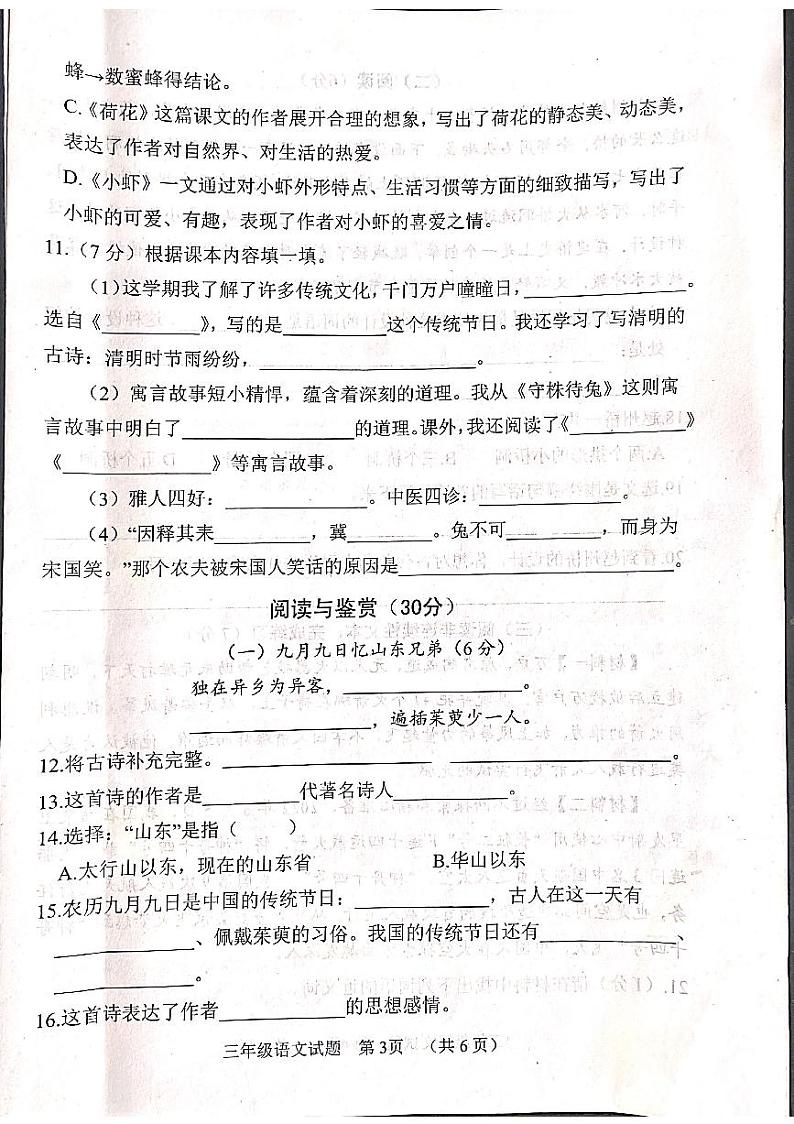 蜂→数蜜蜂得结论。
C.《荷花》这篇课文的作者展开合理的想象，写出了荷花的静态美、动态美，
表达了作者对自然界、对生活的热爱。
D.《小虾》一文通过对小虾外形特点、生活习惯等方面的细致描写，写出了
小虾的可爱、有趣，表现了作者对小虾的喜爱之情。
11.（7分）根据课本内容填一填。
（1）这学期我了解了许多传统文化，千门万户曈曈日，____________。
选自《________》，写的是________这个传统节日。我还学习了写清明的
古诗：清明时节雨纷纷，________________。
（2）寓言故事短小精悍，蕴含着深刻的道理。我从《守株待兔》这则寓
言故事中明白了____________的道理。课外，我还阅读了《________》
《__________》等寓言故事。
（3）雅人四好：__________。中医四诊：__________。
（4）“因释其耒________，冀________。兔不可________，而身为
宋国笑。”那个农夫被宋国人笑话的原因是____________________。
阅读与鉴赏（30分）
（一）九月九日忆山东兄弟（6分）
独在异乡为异客，____________。
____________，遍插茱萸少一人。
12.将古诗补充完整。____________ ____________。
13.这首诗的作者是________代著名诗人________。
14.选择：“山东”是指（ ）
A.太行山以东，现在的山东省 B.华山以东
15.农历九月九日是中国的传统节日：__________，古人在这一天有
__________、佩戴茱萸的习俗。我国的传统节日还有__________、
__________。
16.这首诗表达了作者__________的思想感情。
三年级语文试题 第3页 （共6页）